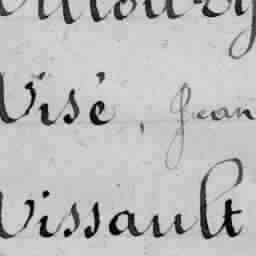 Visé, Jean
Vissault